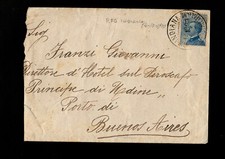 Sig
Franzi Giovanni
Direttore d'Hotel sul Piroscafo
Principe di Udine
Porto di
Buenos Aires